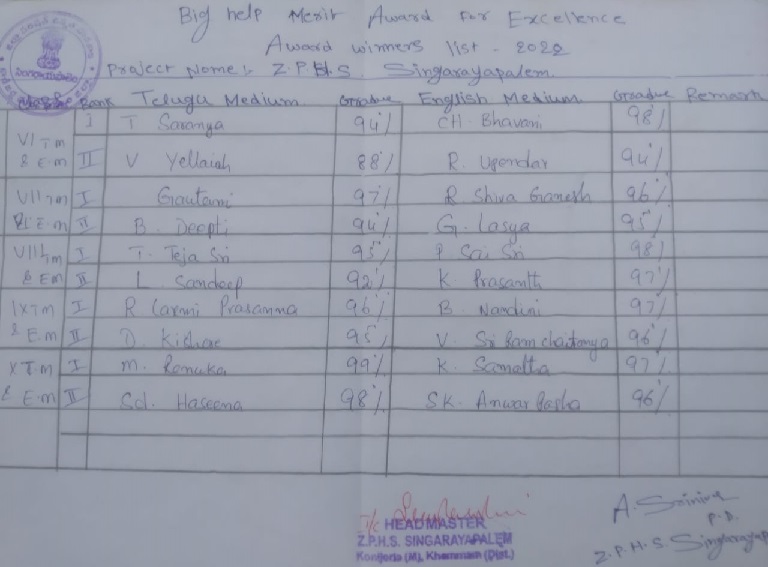 Big help Merit Award For Excellence
Award winners list - 2022
Project Name:- Z.P.H.S. Singarayapalem
Rank Telugu Medium Grade English Medium Grade Remark
VI T.m I T Saranya 94% CH. Bhavani 98%
& E.m II V Yellaiah 88% R. Upendar 94%
VII T.m I Goutami 97% R Shiva Ganesh 96%
& E.m II B. Deepti 94% G. Lasya 95%
VIII T.m I T. Teja Sri 95% P Sai Sri 98%
& E.m II L Sandeep 92% K Prasanth 97%
IX T.m I R Laxmi Prasanna 96% B. Nandini 97%
& E.m II D. Kishore 95% V. Sri Ram chaitanya 96%
X T.m I M. Renuka 99% K. Samatha 97%
& E.m II Sd. Haseena 98% SK. Anwar Basha 96%
I/c
HEADMASTER
Z.P.H.S. SINGARAYAPALEM
Konijerla (M), Khammam (Dist.)
A. Sriniva
P.D.
Z.P.H.S. Singarayap